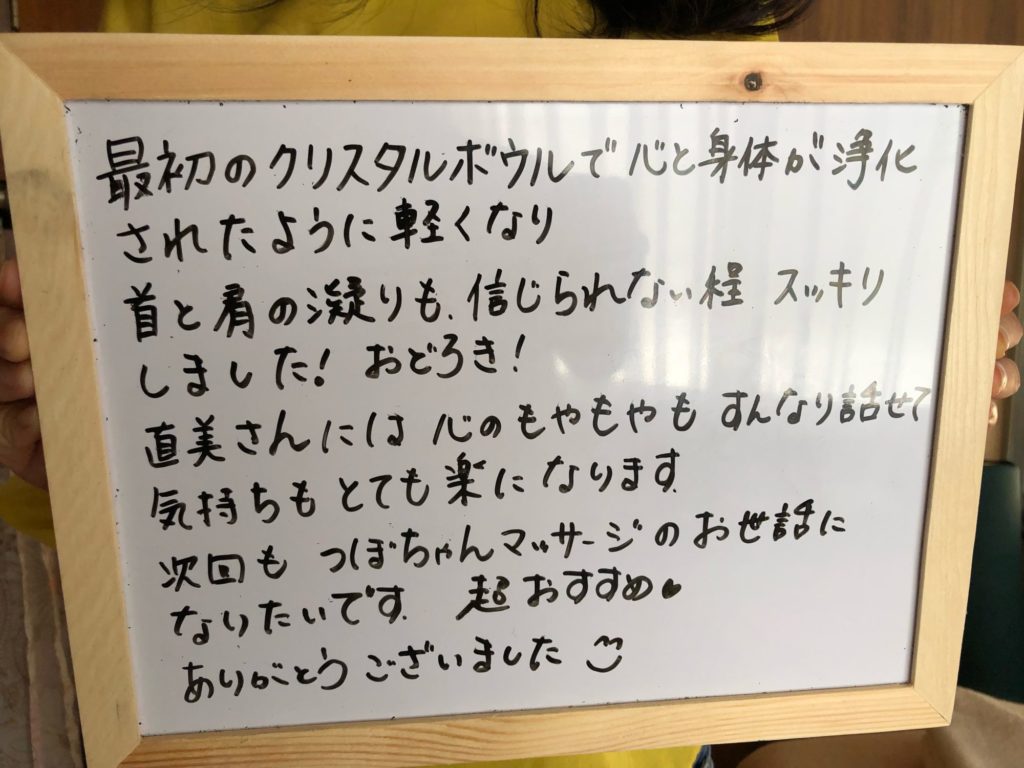 最初のクリスタルボウルで心と身体が浄化
されたように軽くなり
首と肩の凝りも、信じられない程 スッキリ
しました! おどろき!
直美さんには 心のもやもやも すんなり話せて
気持ちもとても楽になります。
次回も つぼちゃんマッサージのお世話に
なりたいです。 超おすすめ♥
ありがとうございました